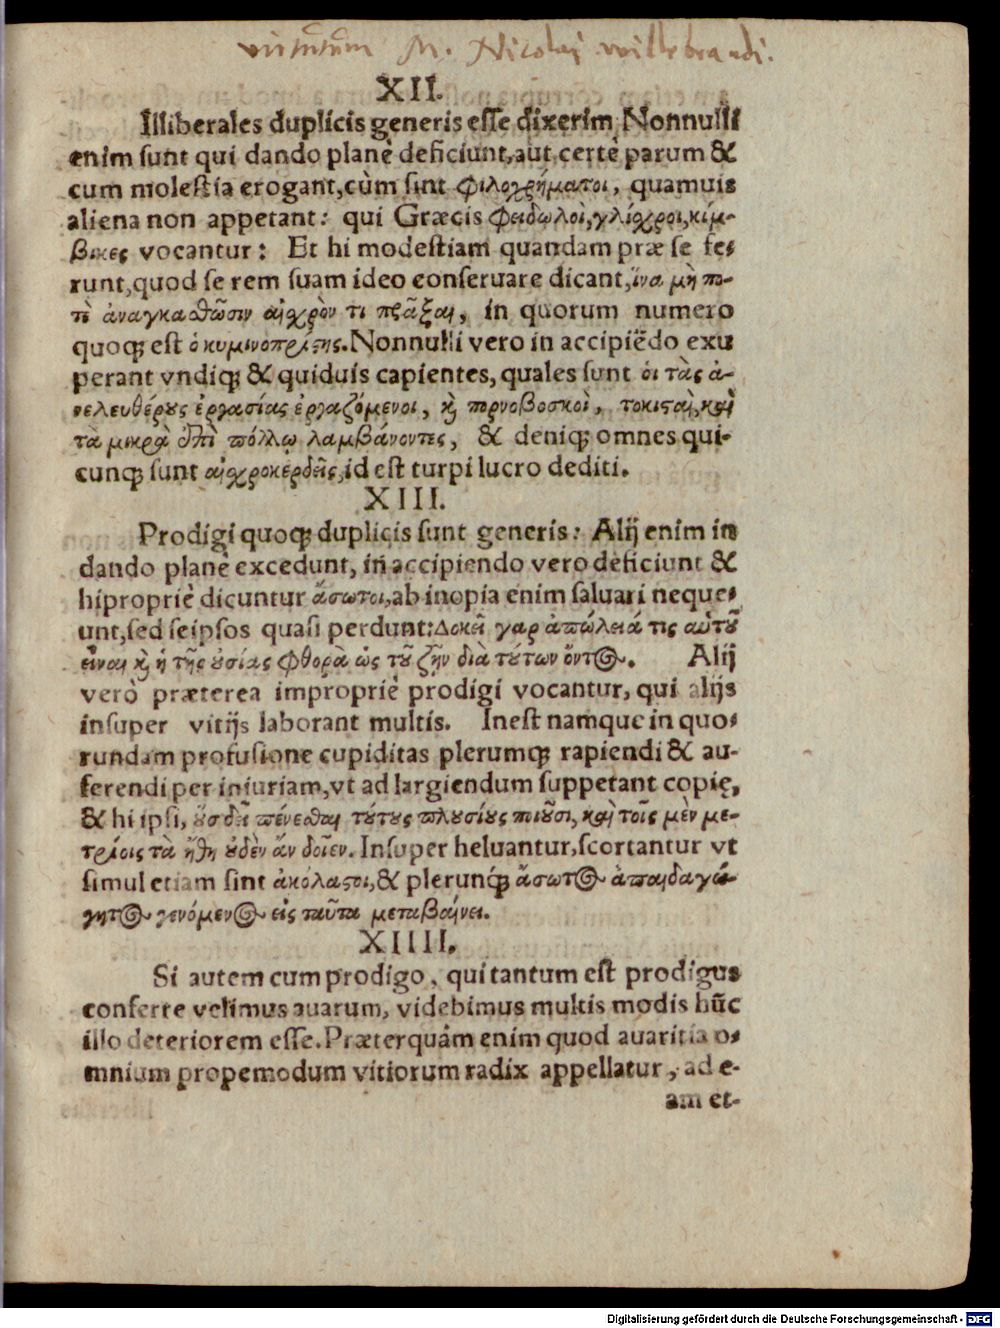 virtutum M. Nicolaj willebrandi.
XII.
Illiberales duplicis generis esse dixerim Nonnulli
enim sunt qui dando planè deficiunt,aut certè parum &
cum molestia erogant,cùm sint φιλοχρήματοι, quamuis
aliena non appetant: qui Græcis φειδωλοὶ,γλίοχροι,κίμ-
βικες vocantur: Et hi modestiam quandam præ se fe-
runt,quod se rem suam ideo conseruare dicant,ἵνα μὴ πο-
τὲ ἀναγκασθῶσιν αἰχρὸν τι πρᾶξαι, in quorum numero
quoq; est ὁ κυμινοπρίςης. Nonnulli vero in accipiēdo exu
perant vndiq; & quiduis capientes, quales sunt οἱ τὰς ἀ-
νελευθέρους ἐργασίας ἐργαζόμενοι, καὶ πορνοβοσκοὶ, τοκιςαὶ, καὶ
τὰ μικρὰ ἐπὶ πόλλῳ λαμβάνοντες, & deniq; omnes qui-
cunq; sunt αἰχροκερδεῖς,id est turpi lucro dediti.
XIII.
Prodigi quoq; duplicis sunt generis: Alij enim in
dando planè excedunt, in accipiendo vero deficiunt &
hi propriè dicuntur ἄσωτοι,ab inopia enim saluari neque-
unt,sed seipsos quasi perdunt:Δοκεῖ γαρ ἀπώλειά τις αὐτοῦ
εἶναι καὶ ἡ τῆς οὐσίας φθορὰ ὡς τοῦ ζῆν διὰ τούτων ὄντος. Alij
verò præterea impropriè prodigi vocantur, qui alijs
insuper vitijs laborant multis. Inest namque in quo-
rundam profusione cupiditas plerumq; rapiendi & au-
ferendi per iniuriam,vt ad largiendum suppetant copię,
& hi ipsi, οὓς δεῖ πένεσθαι τούτους πλουσίους ποιοῦσι, καὶ τοῖς μὲν με-
τρίοις τὰ ἤθη οὐδὲν ἄν δοῖεν. Insuper heluantur,scortantur vt
simul etiam sint ἀκόλαςοι,& plerunq́; ἄσωτος ἀπαιδαγώ-
γητος γενόμενος εἰς ταῦτα μεταβαίνει.
XIIII.
Si autem cum prodigo, qui tantum est prodigus
conferre velimus auarum, videbimus multis modis hūc
illo deteriorem esse. Præterquàm enim quod avaritia o-
mnium propemodum vitiorum radix appellatur, ad e-
am et-
Digitalisierung gefördert durch die Deutsche Forschungsgemeinschaft - DFG